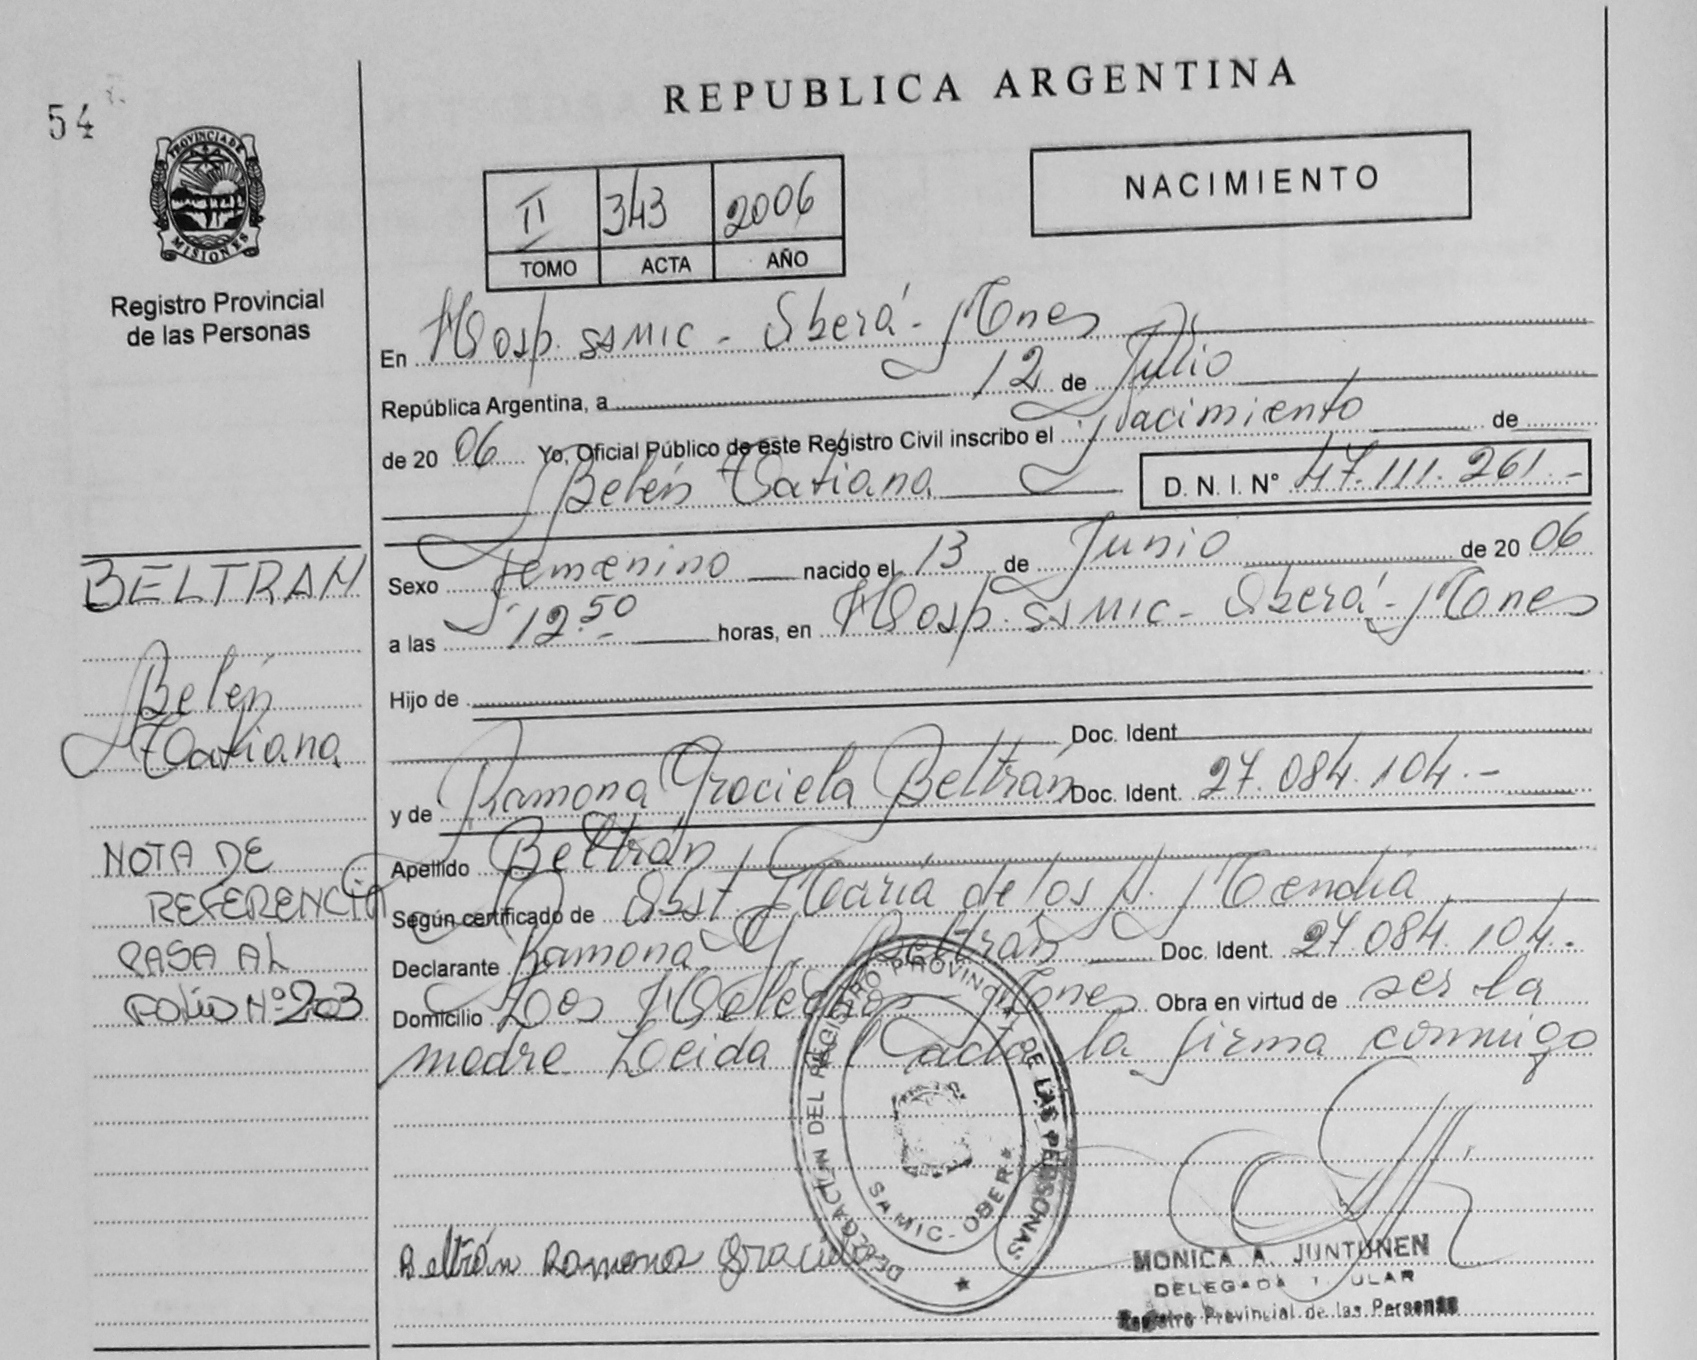 54
REPUBLICA ARGENTINA
PROVINCIA DE MISIONES
Registro Provincial
de las Personas
NACIMIENTO
II 343 2006
TOMO ACTA AÑO
En Hosp. SAMIC - Oberá - Mnes
República Argentina, a 12 de Julio
de 2006 Yo, Oficial Público de este Registro Civil inscribo el Nacimiento de
Belén Tatiana D. N. I. N° 47.111.261.-
BELTRAN
Belén
Tatiana
Sexo Femenino nacido el 13 de Junio de 2006
a las 12.50 horas, en Hosp. SAMIC - Oberá - Mnes
Hijo de
Doc. Ident
y de Ramona Graciela Beltrán Doc. Ident. 27.084.104.-
NOTA DE
REFERENCIA
PASA AL
FOLIO Nº 203
Apellido Beltrán
Según certificado de Obst María de los A.
Declarante Ramona G. Beltrán Doc. Ident. 27.084.104.
Domicilio Los Mnes Obra en virtud de ser la
madre Leida el acta la firma conmigo
DELEGACION DEL REGISTRO PROVINCIAL DE LAS PERSONAS
SAMIC - OBERA
Beltrán Ramona Graciela
MONICA A. JUNTUNEN
DELEGADA
Registro Provincial de las Personas